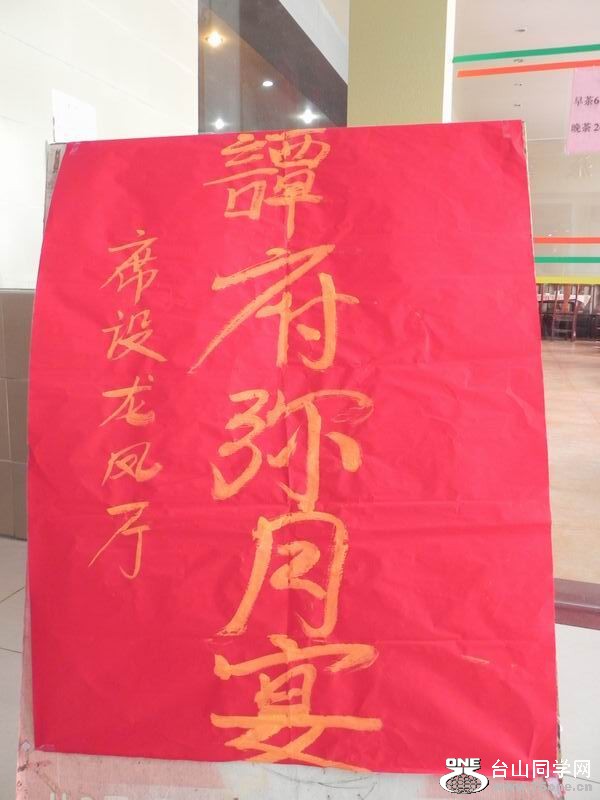 譚府弥月宴
席设龙凤厅
早茶6
晚茶2
ONE
台山同学网